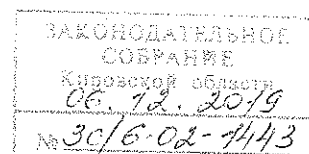 ЗАКОНОДАТЕЛЬНОЕ
СОБРАНИЕ
Кировской области
06.12.2019
№ 30/6-02-1443